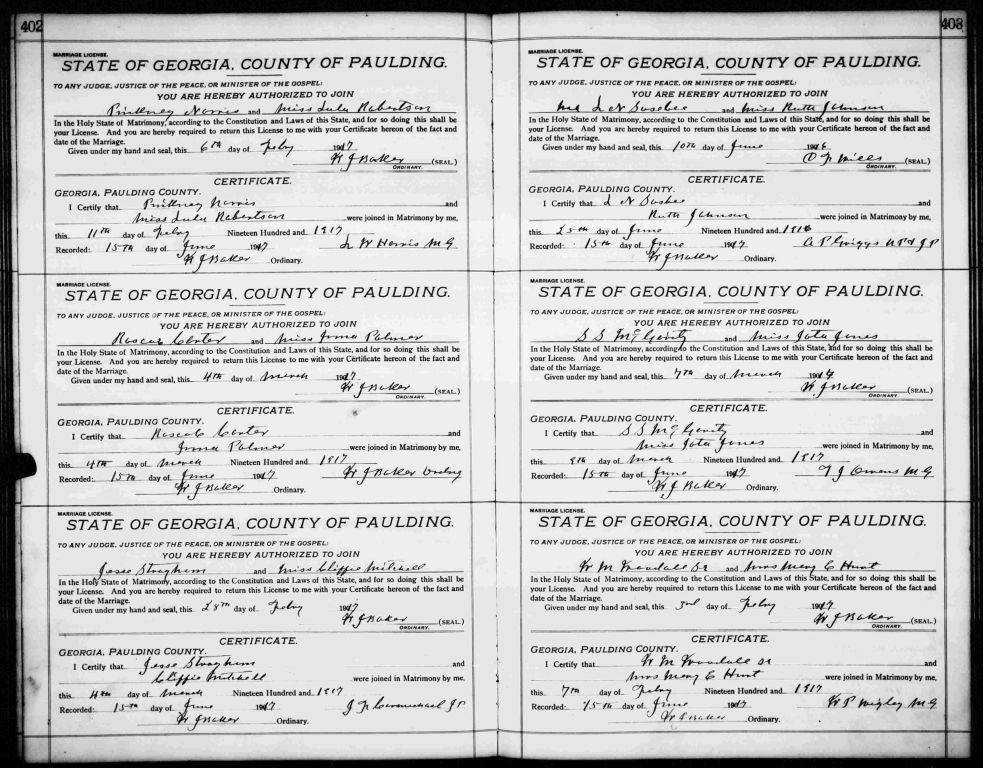 402
MARRIAGE LICENSE.
STATE OF GEORGIA, COUNTY OF PAULDING.
TO ANY JUDGE, JUSTICE OF THE PEACE, OR MINISTER OF THE GOSPEL:
YOU ARE HEREBY AUTHORIZED TO JOIN
Pinkney Norris and Miss Lula Robertson
In the Holy State of Matrimony, according to the Constitution and Laws of this State, and for so doing this shall be
your License. And you are hereby required to return this License to me with your Certificate hereon of the fact and
date of the Marriage.
Given under my hand and seal, this 6th day of Feby 1917
W J Baker (SEAL.)
ORDINARY.
CERTIFICATE.
GEORGIA, PAULDING COUNTY.
I Certify that Pinkney Norris and
Miss Lula Robertson were joined in Matrimony by me,
this 11th day of Feby Nineteen Hundred and 1917
Recorded: 15th day of June 1917 W Harris M G
W J Baker Ordinary.
MARRIAGE LICENSE.
STATE OF GEORGIA, COUNTY OF PAULDING.
TO ANY JUDGE, JUSTICE OF THE PEACE, OR MINISTER OF THE GOSPEL:
YOU ARE HEREBY AUTHORIZED TO JOIN
Roscoe Carter and Miss Irma Palmer
In the Holy State of Matrimony, according to the Constitution and Laws of this State, and for so doing this shall be
your License. And you are hereby required to return this License to me with your Certificate hereon of the fact and
date of the Marriage.
Given under my hand and seal, this 4th day of March 1917
W J Baker (SEAL.)
ORDINARY.
CERTIFICATE.
GEORGIA, PAULDING COUNTY.
I Certify that Roscoe Carter and
Irma Palmer were joined in Matrimony by me,
this 4th day of March Nineteen Hundred and 1917
Recorded: 15th day of June 1917 W J Baker Ordny
W J Baker Ordinary.
MARRIAGE LICENSE.
STATE OF GEORGIA, COUNTY OF PAULDING.
TO ANY JUDGE, JUSTICE OF THE PEACE, OR MINISTER OF THE GOSPEL:
YOU ARE HEREBY AUTHORIZED TO JOIN
Jesse and Miss Cliffie Mitchell
In the Holy State of Matrimony, according to the Constitution and Laws of this State, and for so doing this shall be
your License. And you are hereby required to return this License to me with your Certificate hereon of the fact and
date of the Marriage.
Given under my hand and seal, this 28th day of Feby 1917
W J Baker (SEAL.)
ORDINARY.
CERTIFICATE.
GEORGIA, PAULDING COUNTY.
I Certify that Jesse and
Cliffie Mitchell were joined in Matrimony by me,
this 4th day of March Nineteen Hundred and 1917
Recorded: 15th day of June 1917 Carmichael J P
W J Baker Ordinary.
403
MARRIAGE LICENSE.
STATE OF GEORGIA, COUNTY OF PAULDING.
TO ANY JUDGE, JUSTICE OF THE PEACE, OR MINISTER OF THE GOSPEL:
YOU ARE HEREBY AUTHORIZED TO JOIN
Mr L N Sosebee and Miss Ruth Johnson
In the Holy State of Matrimony, according to the Constitution and Laws of this State, and for so doing this shall be
your License. And you are hereby required to return this License to me with your Certificate hereon of the fact and
date of the Marriage.
Given under my hand and seal, this 10th day of June 1916
O F Mills (SEAL.)
ORDINARY.
CERTIFICATE.
GEORGIA, PAULDING COUNTY.
I Certify that L N Sosbee and
Ruth Johnson were joined in Matrimony by me,
this 25th day of June Nineteen Hundred and 1916
Recorded: 15th day of June 1917 A P Griggs N P & J P
W J Baker Ordinary.
MARRIAGE LICENSE.
STATE OF GEORGIA, COUNTY OF PAULDING.
TO ANY JUDGE, JUSTICE OF THE PEACE, OR MINISTER OF THE GOSPEL:
YOU ARE HEREBY AUTHORIZED TO JOIN
S S McGarity and Miss Iota Jones
In the Holy State of Matrimony, according to the Constitution and Laws of this State, and for so doing this shall be
your License. And you are hereby required to return this License to me with your Certificate hereon of the fact and
date of the Marriage.
Given under my hand and seal, this 7th day of March
W J Baker (SEAL.)
ORDINARY.
CERTIFICATE.
GEORGIA, PAULDING COUNTY.
I Certify that S S McGarity and
Miss Iota Jones were joined in Matrimony by me,
this 8th day of March Nineteen Hundred and 1917
Recorded: 15th day of June 1917 T J Owens M G
W J Baker Ordinary.
MARRIAGE LICENSE.
STATE OF GEORGIA, COUNTY OF PAULDING.
TO ANY JUDGE, JUSTICE OF THE PEACE, OR MINISTER OF THE GOSPEL:
YOU ARE HEREBY AUTHORIZED TO JOIN
W M Sr and Mrs Mary C Hunt
In the Holy State of Matrimony, according to the Constitution and Laws of this State, and for so doing this shall be
your License. And you are hereby required to return this License to me with your Certificate hereon of the fact and
date of the Marriage.
Given under my hand and seal, this 3rd day of Feby 1917
W J Baker (SEAL.)
ORDINARY.
CERTIFICATE.
GEORGIA, PAULDING COUNTY.
I Certify that W M Sr and
Mrs Mary C Hunt were joined in Matrimony by me,
this 7th day of Feby Nineteen Hundred and 1917
Recorded: 15th day of June 1917 W P Wigley M G
W J Baker Ordinary.